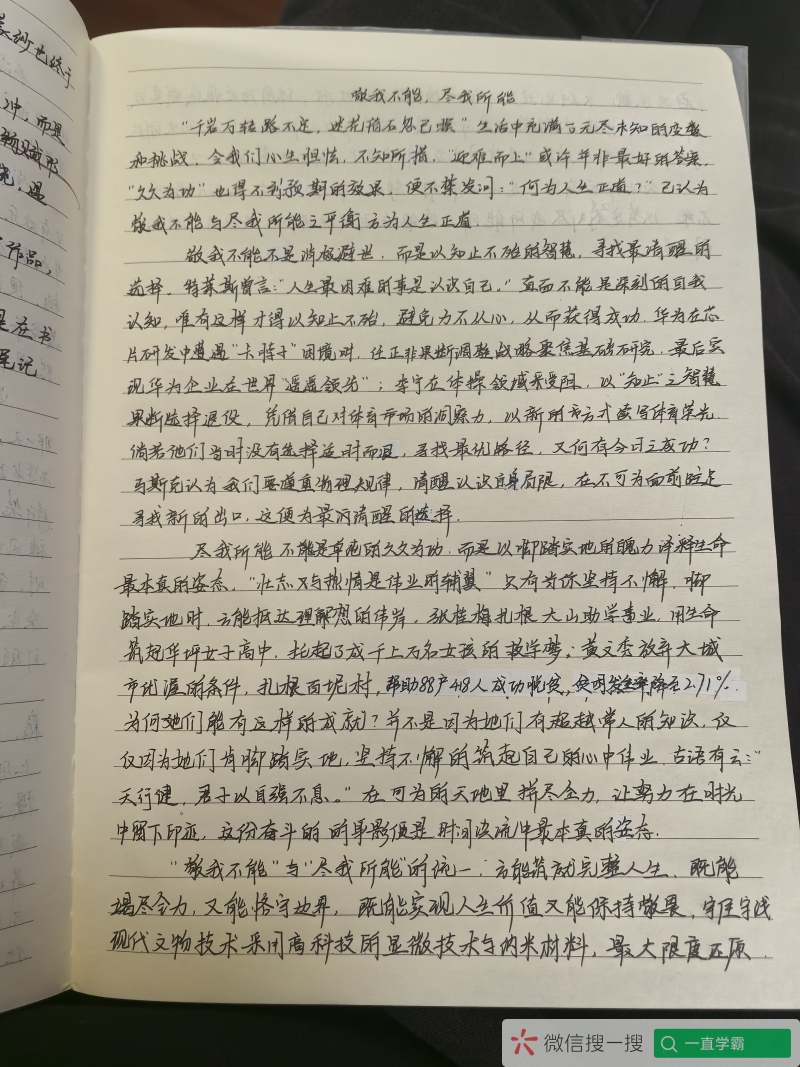 家纱也终于
冲，而是
作品，
是在书
笔记
敬我不能，尽我所能
"千岩万转路不定，迷花倚石忽已暝"生活中充满了无尽未知的变数
和挑战，令我们心生怛怯，不知所措，"迎难而上"或许并非最好的答案，
"久久为功"也得不到预期的效果，便不禁发问："何为人生正道？"己认为
敬我不能与尽我所能之平衡方为人生正道.
敬我不能不是消极避世，而是以知止不殆的智慧，寻找最清醒的
选择。特莱斯曾言："人生最困难的事是认识自己。"直面不能是深刻的自我
认知，唯有这样才得以知止不殆，避免力不从心，从而获得成功.华为在芯
片研发中遭遇"卡脖子"困境时，任正非果断调整战略聚焦基础研究，最后实
现华为企业在世界"遥遥领先"；李宁在体操领域受阻，以"知止"之智慧
果断选择退役，凭借自己对体育市场的洞察力，以新的方式续写体育荣光
倘若他们当时没有选择适时而退，寻找最优路径，又何有今日之成功？
马斯克认为我们要遵重物理规律，清醒认识自身局限，在不可为面前驻足
寻找新的出口，这便为最为清醒的选择.
尽我所能不能是单纯的久久为功，而是以脚踏实地的魄力诠释生命
最本真的姿态。"壮志与热情是伟业的辅翼"只有当你坚持不懈，脚
踏实地时，方能抵达理想的彼岸，张桂梅扎根大山助学事业，用生命
筑起华坪女子高中，托起了成千上万名女孩的求学梦；黄文秀放弃大城
市优渥的条件，扎根百坭村，帮助88户418人成功脱贫，贫困发生率降至2.71%.
为何她们能有这样的成就？并不是因为她们有超越常人的知识，仅
仅因为她们肯脚踏实地，坚持不懈的筑起自己的心中伟业.古语有云："
天行健，君子以自强不息。"在可为的天地里拼尽全力，让努力在时光
中留下印迹，这份奋斗的的身影便是时间洪流中最本真的姿态.
"敬我不能"与"尽我所能"的统一，方能筑就完整人生.既能
竭尽全力，又能恪守边界，既能实现人生价值又能保持敬畏，守住守线
现代文物技术采用高科技的显微技术与纳米材料，最大限度还原.
微信搜一搜
一直学霸